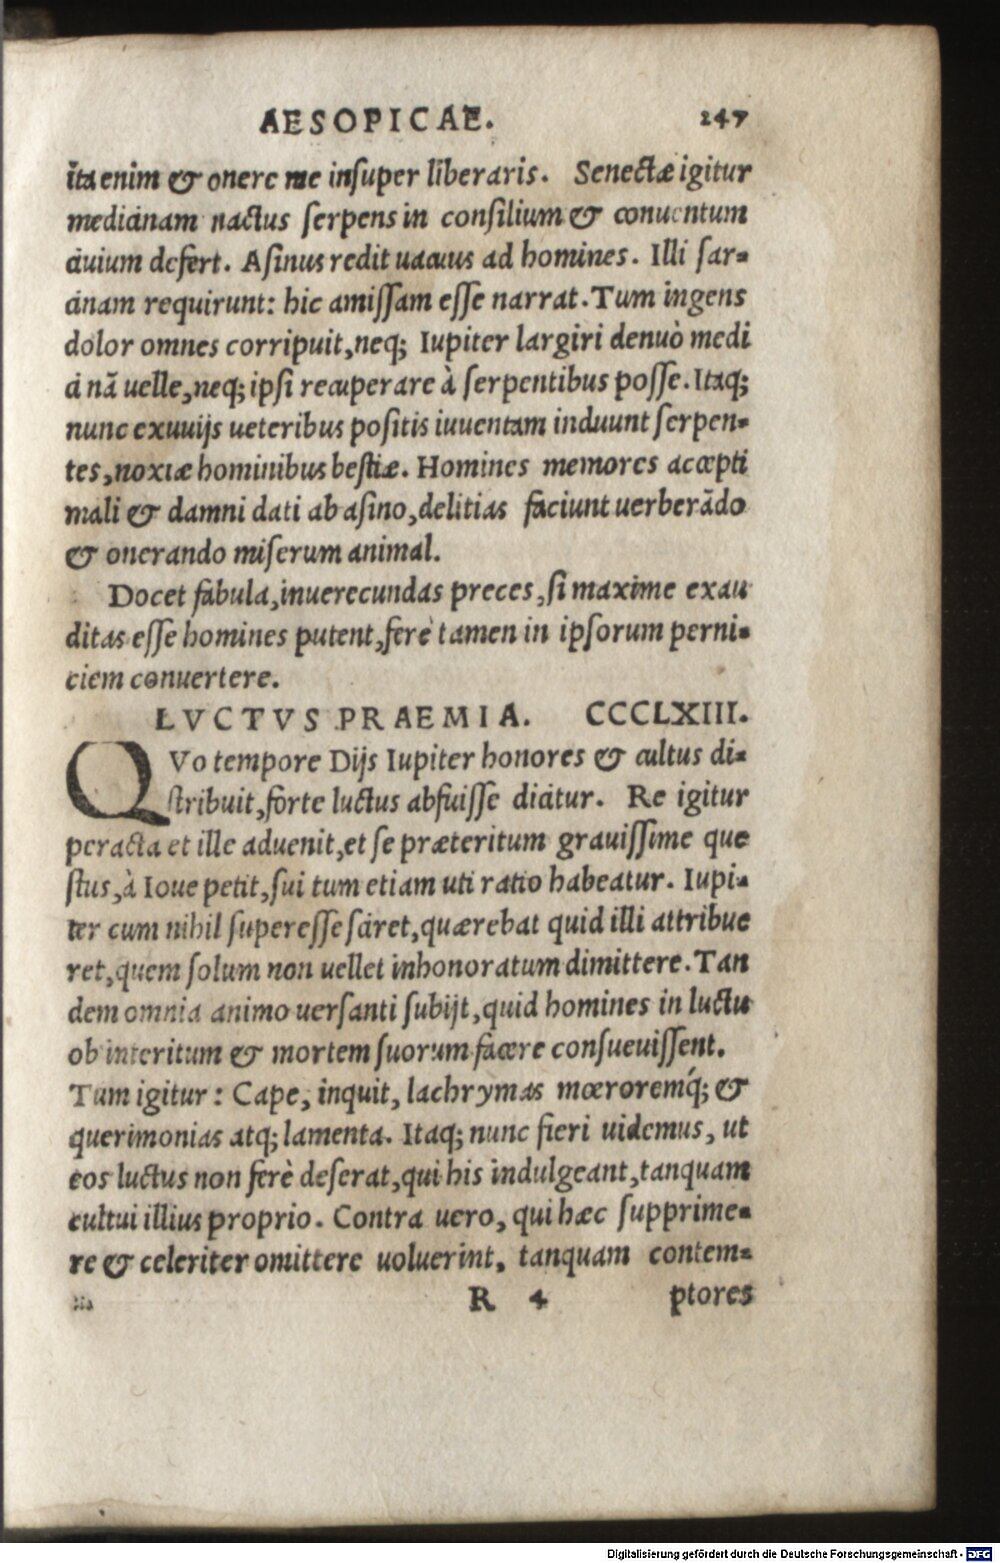 AESOPICAE. 247
ita enim & onere me insuper liberaris. Senectæ igitur
medicinam nactus serpens in consilium & conuentum
ciuium defert. Asinus redit uacuus ad homines. Illi sar-
cinam requirunt: hic amissam esse narrat. Tum ingens
dolor omnes corripuit, neq; Iupiter largiri denuò medi
cinā uelle, neq; ipsi recuperare à serpentibus posse. Itaq;
nunc exuuijs ueteribus positis iuuentam induunt serpen-
tes, noxiæ hominibus bestiæ. Homines memores accepti
mali & damni dati ab asino, delitias faciunt uerberādo
& onerando miserum animal.
Docet fabula, inuerecundas preces, si maxime exau
ditas esse homines putent, ferè tamen in ipsorum perni-
ciem conuertere.
LVCTVS PRAEMIA. CCCLXIII.
QVo tempore Dijs Iupiter honores & cultus di-
stribuit, forte luctus abfuisse dicitur. Re igitur
peracta et ille aduenit, et se præteritum grauissime que
stus, à Ioue petit, sui tum etiam uti ratio habeatur. Iupi-
ter cum nihil superesse sciret, quærebat quid illi attribue
ret, quem solum non uellet inhonoratum dimittere. Tan
dem omnia animo uersanti subijt, quid homines in luctu
ob interitum & mortem suorum facere consueuissent.
Tum igitur: Cape, inquit, lachrymas mœroremq́; &
querimonias atq; lamenta. Itaq; nunc fieri uidemus, ut
eos luctus non ferè deserat, qui his indulgeant, tanquam
cultui illius proprio. Contra uero, qui hæc supprime-
re & celeriter omittere uoluerint, tanquam contem-
R 4 ptores
Digitalisierung gefördert durch die Deutsche Forschungsgemeinschaft - DFG